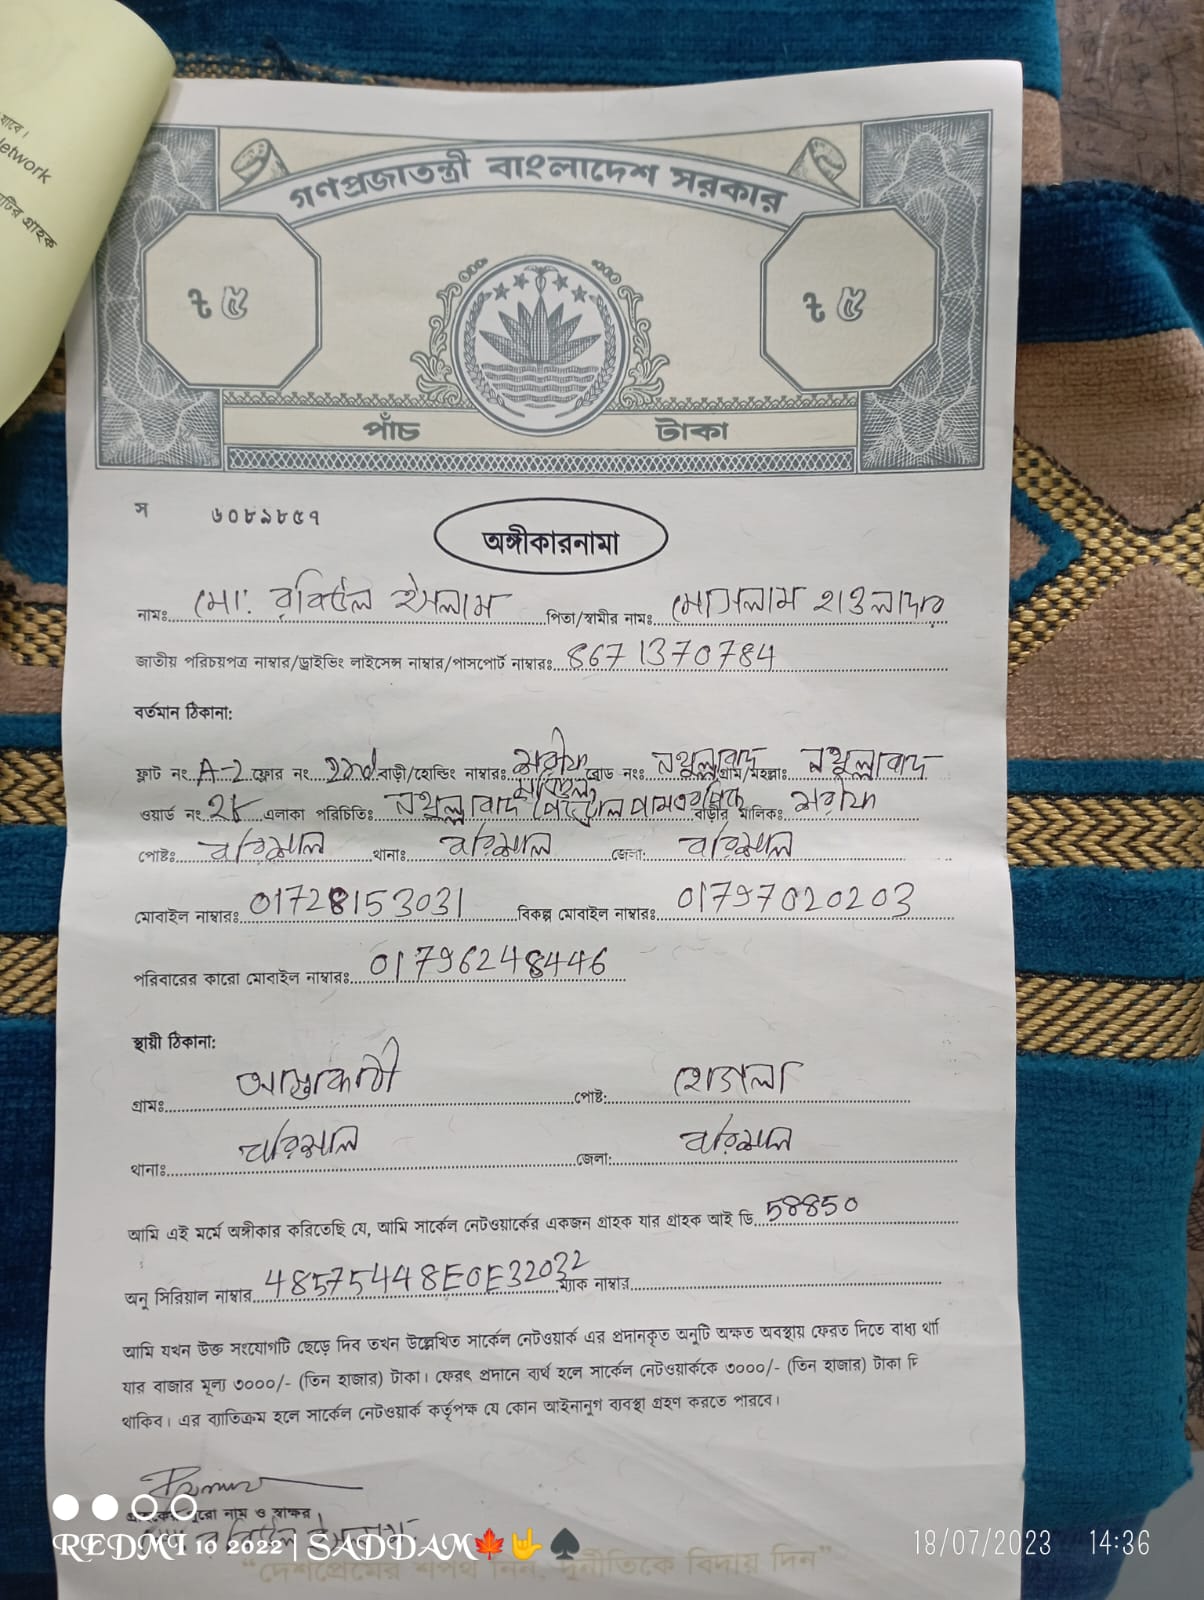 যাবে।
etwork
টির গ্রাহক
গণপ্রজাতন্ত্রী বাংলাদেশ সরকার
৳ ৫ ৳ ৫
পাঁচ টাকা
স ৬০৮৯৮৫৭
অঙ্গীকারনামা
নামঃ মো: রবিউল ইসলাম পিতা/স্বামীর নামঃ মোসলাম হাওলাদার
জাতীয় পরিচয়পত্র নাম্বার/ড্রাইভিং লাইসেন্স নাম্বার/পাসপোর্ট নাম্বারঃ 8671370784
বর্তমান ঠিকানা:
ফ্লাট নং A-2 ফ্লোর নং 2nd বাড়ী/হোল্ডিং নাম্বারঃ রোড নংঃ নথুল্লাবাদ গ্রাম/মহল্লাঃ নথুল্লাবাদ
ওয়ার্ড নং এলাকা পরিচিতিঃ নথুল্লাবাদ পেট্রোল বাড়ীর মালিকঃ
পোষ্টঃ বরিশাল থানাঃ বরিশাল জেলা: বরিশাল
মোবাইল নাম্বারঃ 01728153031 বিকল্প মোবাইল নাম্বারঃ 01797020203
পরিবারের কারো মোবাইল নাম্বারঃ 01796248446
স্থায়ী ঠিকানা:
গ্রামঃ পোষ্ট:
থানাঃ বরিশাল জেলা: বরিশাল
আমি এই মর্মে অঙ্গীকার করিতেছি যে, আমি সার্কেল নেটওয়ার্কের একজন গ্রাহক যার গ্রাহক আই ডি 58850
অনু সিরিয়াল নাম্বার 48575448E0E32032 ম্যাক নাম্বার
আমি যখন উক্ত সংযোগটি ছেড়ে দিব তখন উল্লেখিত সার্কেল নেটওয়ার্ক এর প্রদানকৃত অনুটি অক্ষত অবস্থায় ফেরত দিতে বাধ্য
যার বাজার মূল্য ৩০০০/- (তিন হাজার) টাকা। ফেরৎ প্রদানে ব্যর্থ হলে সার্কেল নেটওয়ার্ককে ৩০০০/- (তিন হাজার) টাকা
থাকিব। এর ব্যাতিক্রম হলে সার্কেল নেটওয়ার্ক কর্তৃপক্ষ যে কোন আইনানুগ ব্যবস্থা গ্রহণ করতে পারবে।
গ্রাহকের পুরো নাম ও স্বাক্ষর
মোঃ রবিউল ইসলাম
REDMI 10 2022 | SADDAM🍁🤟♠ 18/07/2023 14:36
“দেশপ্রেমের শপথ নিন, দুর্নীতিকে বিদায় দিন”